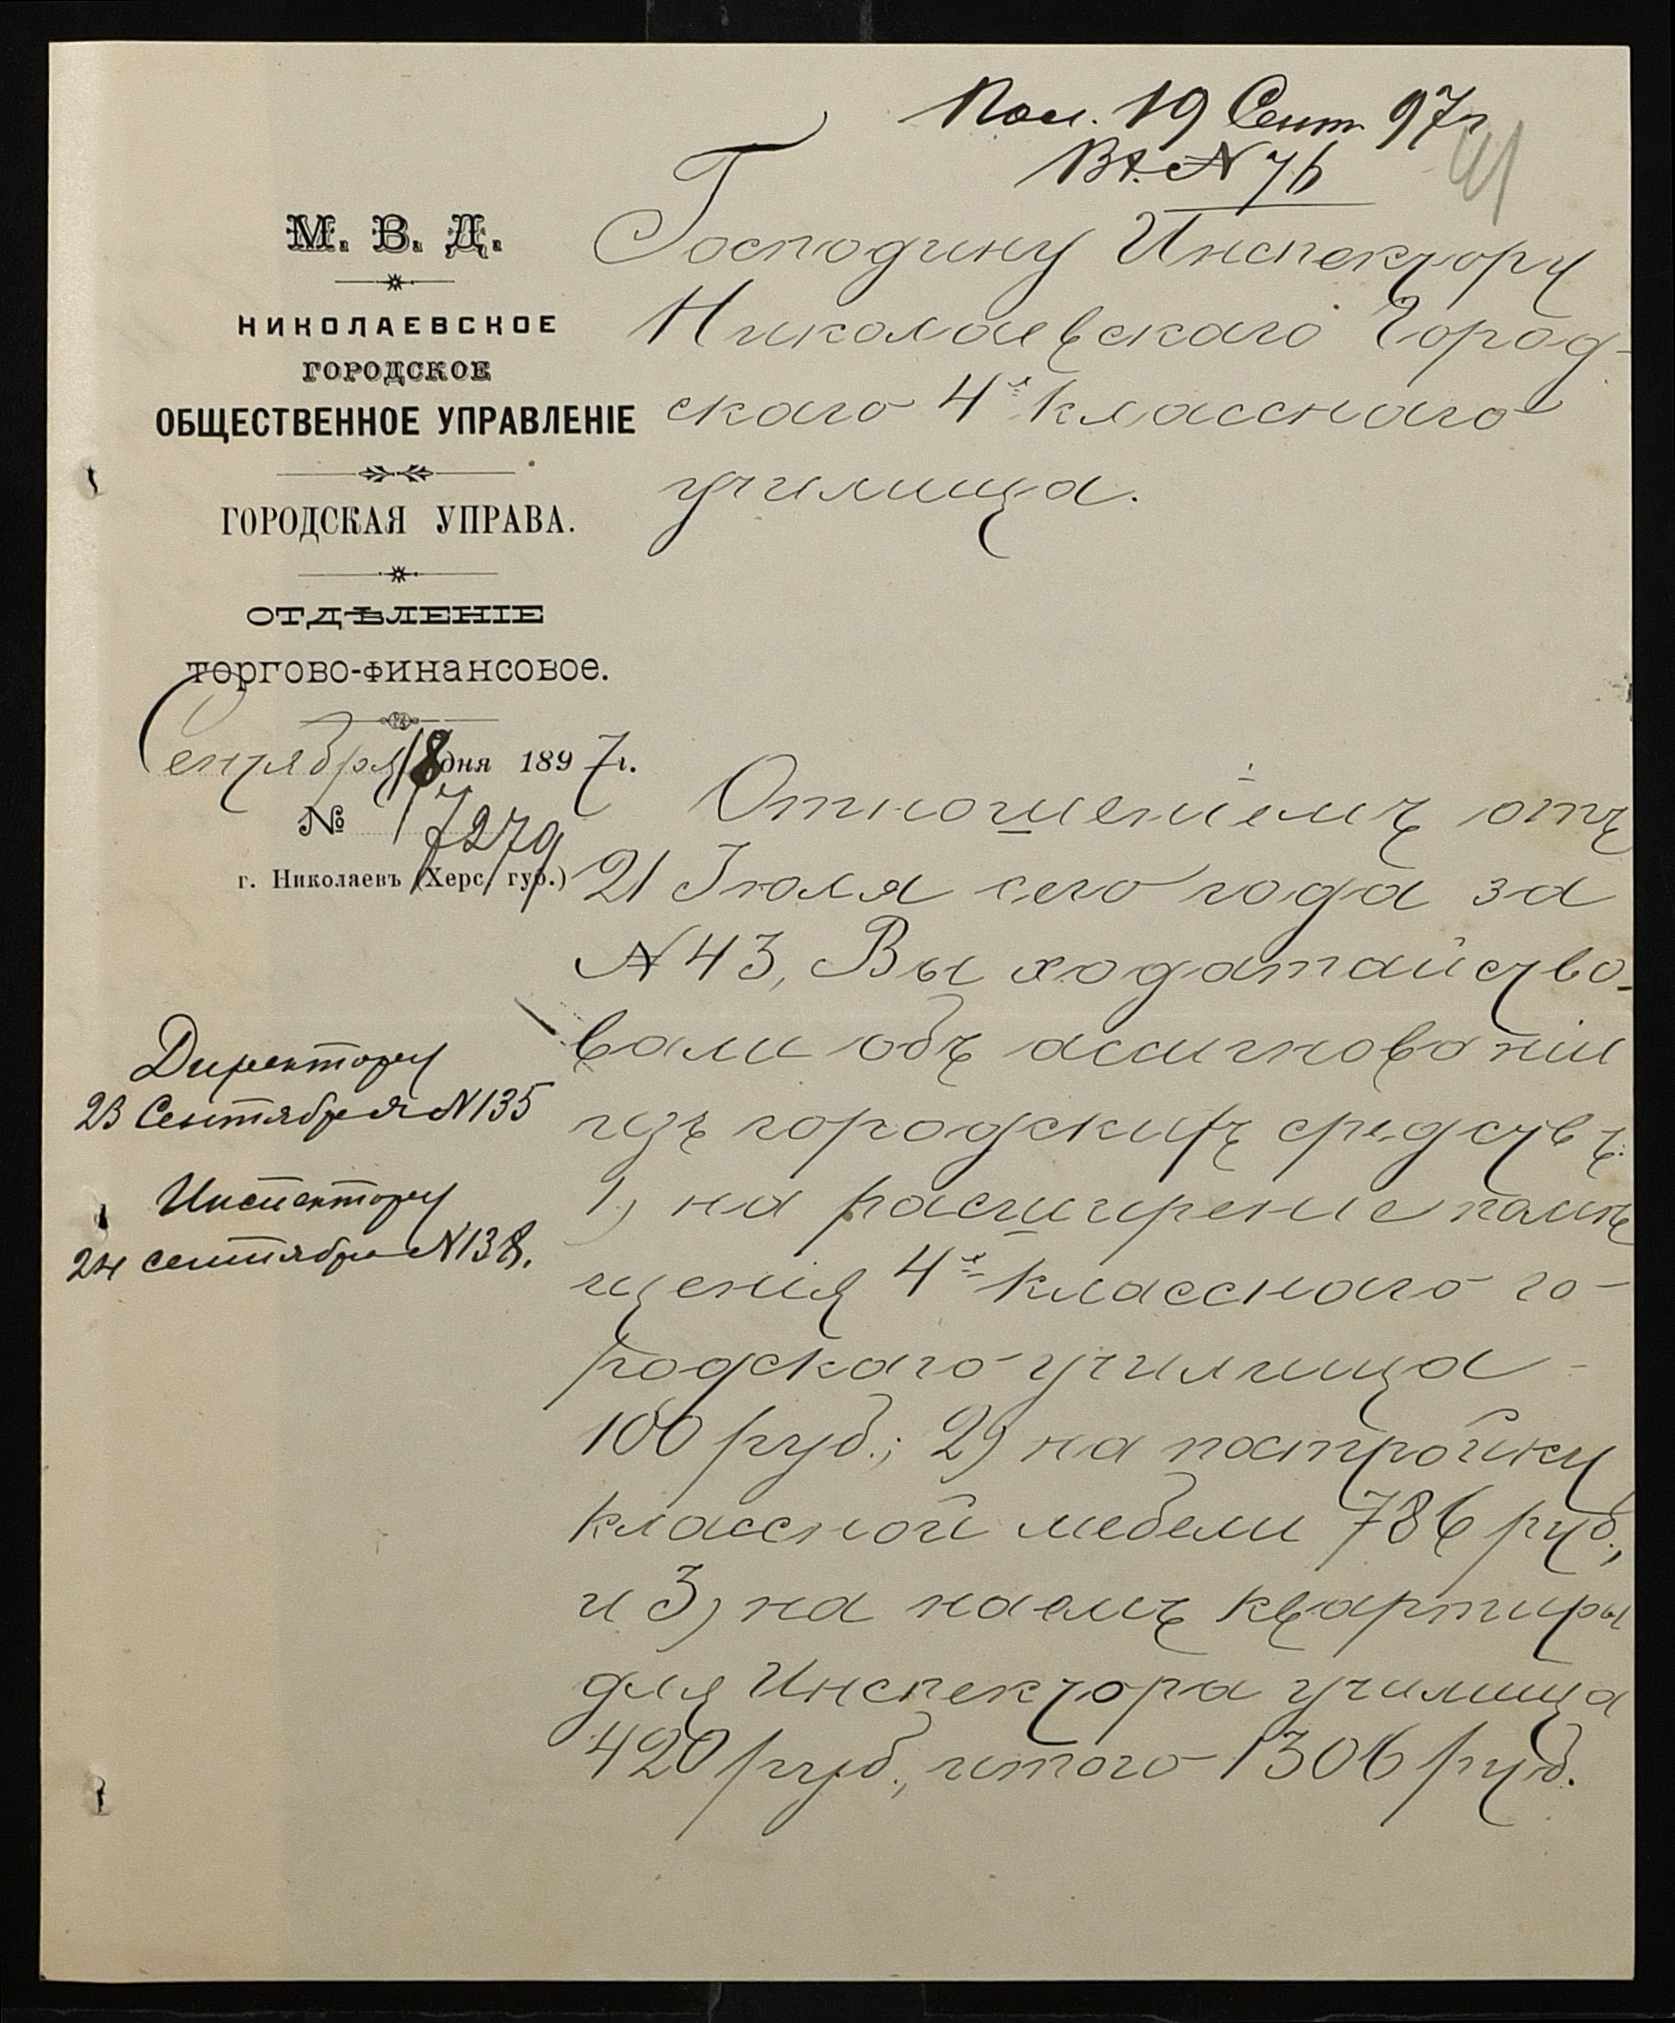 Пол. 19 Сент. 97 г.
Вх. № 76
М. В. Д.
НИКОЛАЕВСКОЕ
ГОРОДСКОЕ
ОБЩЕСТВЕННОЕ УПРАВЛЕНІЕ
ГОРОДСКАЯ УПРАВА.
ОТДѢЛЕНІЕ
ТОРГОВО-ФИНАНСОВОЕ.
Сентября 18 дня 1897 г.
№ 7279
г. Николаевъ (Херс. губ.)
Господину Инспектору
Николаевскаго Город-
скаго 4х классного
училища.
Отношеніемъ отъ
21 Іюля сего года за
№ 43, Вы ходатайство-
вали объ ассигнованіи
изъ городскихъ средствъ:
1) на расширение помѣ
щенія 4х классного го-
родскаго училища -
100 руб.; 2) на постройку
классной мебели 786 руб.,
и 3) на наемъ квартиры
для Инспектора училища
420 руб., итого 1306 руб.
Директору
23 Сентября № 135
Инспектору
24 сентября № 138.